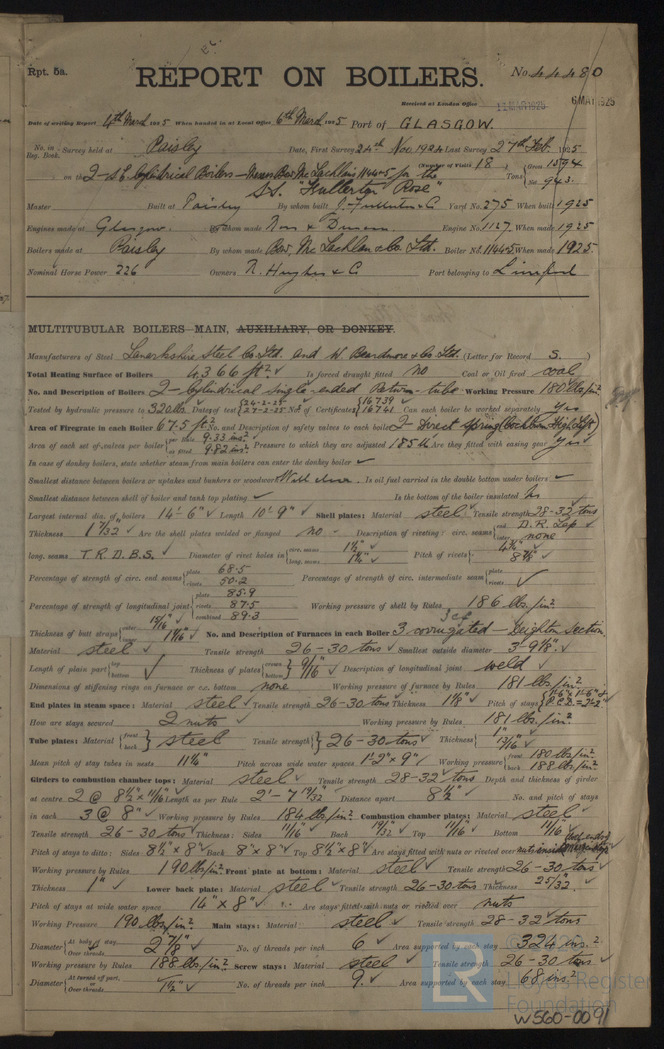 Rpt. 5a.
REPORT ON BOILERS.
No. 44480
Received at London Office
6 MAR 1925
Date of writing Report 4th March 1925 When handed in at Local Office 6th March 1925 Port of GLASGOW.
No. in Reg. Book. Survey held at Paisley Date, First Survey 24th Nov. 1924 Last Survey 27th Feb. 1925
(Number of Visits 18)
on the 2 - S.E. Cylindrical Boilers - Messrs Bow McLachlan 11445 for the Tons Gross 1594 Net 943
S.S. "Fullerton Rose"
Master Built at Paisley By whom built J. Fullerton & Co Yard No. 275 When built 1925
Engines made at Glasgow By whom made Ross & Duncan Engine No. 1127 When made 1925
Boilers made at Paisley By whom made Bow, McLachlan & Co. Ltd. Boiler No. 11445 When made 1925
Nominal Horse Power 226 Owners R. Hughes & Co Port belonging to
MULTITUBULAR BOILERS—MAIN, AUXILIARY, OR DONKEY.
Manufacturers of Steel Lanarkshire Steel Co. Ltd. and W. Beardmore & Co. Ltd. (Letter for Record S.)
Total Heating Surface of Boilers 4366 ft² Is forced draught fitted no Coal or Oil fired coal
No. and Description of Boilers 2 - Cylindrical single-ended Return-tube Working Pressure 180 lbs/in²
Tested by hydraulic pressure to 320 lbs. Date of test 26-2-25 27-2-25 No. of Certificate 16739 16741 Can each boiler be worked separately yes
Area of Firegrate in each Boiler 67.5 ft² No. and Description of safety valves to each boiler 2 - Direct spring Cockburn High Lift
Area of each set of valves per boiler per Rule 9.33 ins² as fitted 9.82 ins² Pressure to which they are adjusted 185 lb Are they fitted with easing gear yes
In case of donkey boilers, state whether steam from main boilers can enter the donkey boiler
Smallest distance between boilers or uptakes and bunkers or woodwork Well clear. Is oil fuel carried in the double bottom under boilers
Smallest distance between shell of boiler and tank top plating Is the bottom of the boiler insulated
Largest internal dia. of boilers 14'-6" Length 10'-9" Shell plates: Material steel Tensile strength 28-32 tons
Thickness 1 7/32" Are the shell plates welded or flanged no Description of riveting: circ. seams end D.R. Lap inter. none
long. seams T.R.D.B.S. Diameter of rivet holes in circ. seams long. seams Pitch of rivets
Percentage of strength of circ. end seams plate 68.5 rivets 50.2 Percentage of strength of circ. intermediate seam plate rivets
Percentage of strength of longitudinal joint plate 85.9 rivets 87.5 combined 89.3 Working pressure of shell by Rules 186 lbs/in²
Thickness of butt straps outer inner No. and Description of Furnaces in each Boiler 3 corrugated - Deighton section
Material steel Tensile strength 26-30 tons Smallest outside diameter
Length of plain part top bottom Thickness of plates crown bottom 9/16" Description of longitudinal joint weld
Dimensions of stiffening rings on furnace or c.c. bottom none Working pressure of furnace by Rules 181 lbs/in²
End plates in steam space: Material steel Tensile strength 26-30 tons Thickness 1 1/8" Pitch of stays
How are stays secured 2 nuts Working pressure by Rules 181 lbs/in²
Tube plates: Material front back steel Tensile strength 26-30 tons Thickness 1" 13/16"
Mean pitch of stay tubes in nests 11 1/4" Pitch across wide water spaces 1'-2" x 9" Working pressure front 180 lbs/in² back 188 lbs/in²
Girders to combustion chamber tops: Material steel Tensile strength 28-32 tons Depth and thickness of girder
at centre 2 @ 8 1/2" x 11/16" Length as per Rule 2'-7 19/32" Distance apart 8 1/2" No. and pitch of stays
in each 3 @ 8" Working pressure by Rules 184 lbs/in² Combustion chamber plates: Material steel
Tensile strength 26-30 tons Thickness: Sides 11/16" Back 19/32" Top 11/16" Bottom 11/16"
Pitch of stays to ditto: Sides 8 1/2" x 8" Back 8" x 8" Top 8 1/2" x 8" Are stays fitted with nuts or riveted over nuts inside
Working pressure by Rules 190 lbs/in² Front plate at bottom: Material steel Tensile strength 26-30 tons
Thickness 1" Lower back plate: Material steel Tensile strength 26-30 tons Thickness 25/32"
Pitch of stays at wide water space 14" x 8" Are stays fitted with nuts or riveted over nuts
Working Pressure 190 lbs/in² Main stays: Material steel Tensile strength 28-32 tons
Diameter At body of stay, or Over threads 2 7/8" No. of threads per inch 6 Area supported by each stay 324 ins²
Working pressure by Rules 188 lbs/in² Screw stays: Material steel Tensile strength 26-30 tons
Diameter At turned off part, or Over threads 1 1/2" No. of threads per inch 9 Area supported by each stay 68 ins²
LR
© 2020
Lloyd's Register
Foundation
W560-0091